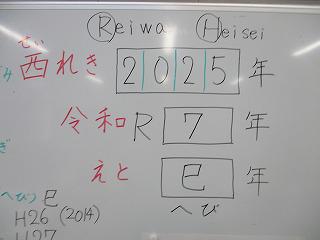 Reiwa Heisei
せい
西れき 2025 年
み
令和 R 7 年
ぎ
えと 巳 年
へび
へびつ 巳
H26 (2014)
H27